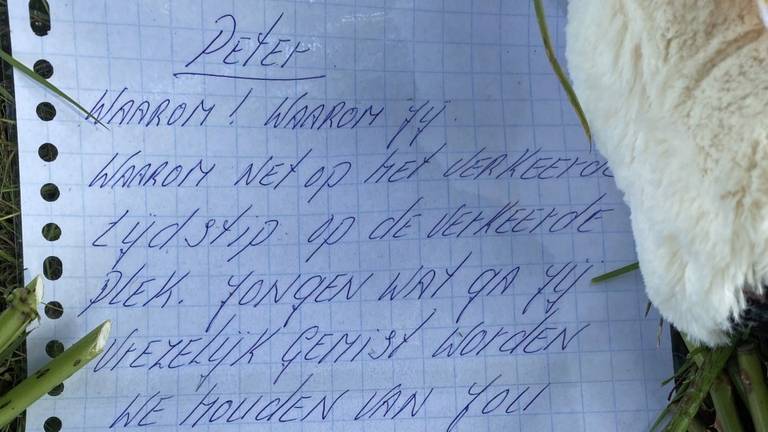 Peter
WAAROM! WAAROM JIJ.
WAAROM NET OP HET VERKEERDE
tijdstip op de verkeerde
PLEK. JONGEN WAT GA JIJ
VREZELIJK GEMIST WORDEN
WE HOUDEN VAN JOU